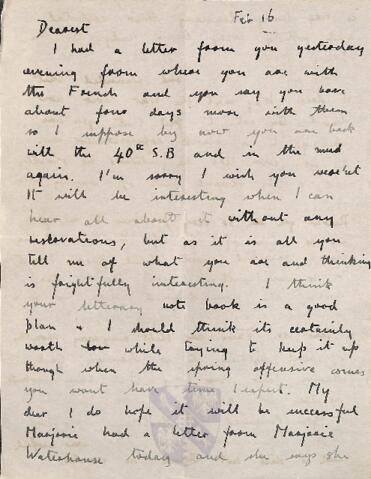 Feb 16
Dearest
I had a letter from you yesterday
evening from where you are with
the French and you say you have
about four days more with them
so I suppose by now you are back
with the 40th S.B and in the mud
again. I'm sorry I wish you weren't
It will be interesting when I can
hear all about it without any
reservations, but as it is all you
tell me of what you are and thinking
is frightfully interesting. I think
your letterary note book is a good
plan & I should think its certainly
worth while trying to keep it up
though when the spring offensive comes
you wont have time I expect. My
dear I do hope it will be successful
Marjorie had a letter from Marjorie
Waterhouse today and she says she